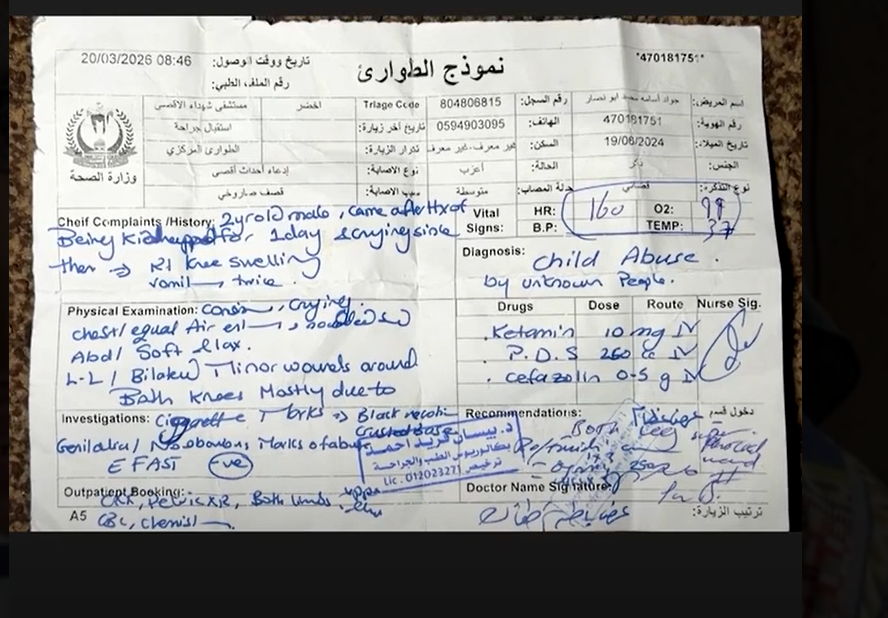 20/03/2026 08:46 تاريخ ووقت الوصول:
نموذج الطوارئ
*470181751*
رقم الملف الطبي:
وزارة الصحة
مستشفى شهداء الاقصى
اخضر
Triage Code
804806815 رقم السجل:
جواد اسامه محمد ابو نصار اسم المريض:
استقبال جراحة
تاريخ آخر زيارة:
0594903095 الهاتف:
470181751 رقم الهوية:
الطوارئ المركزي
تكرار الزيارة:
غير معرف-غير معرف السكن:
19/06/2024 تاريخ الميلاد:
إدعاء أحداث أقصى نوع الاصابة:
أعزب الحالة:
ذكر الجنس:
قصف صاروخي سبب الاصابة:
متوسطة حالة المصاب:
نوع التذكرة:
Cheif Complaints /History: 2 yr old male, came after Hx of
Being Kidnapped for 1 day & crying since
then → Rt Knee swelling
vomit twice.
Vital Signs:
HR: 160 O2: 99
B.P: TEMP: 37
Diagnosis: Child Abuse.
by unknown People.
Physical Examination: crying.
chest/ equal Air
Abd/ Soft & lax.
L-L/ Minor wounds around
Both Knees Mostly due to
Drugs Dose Route Nurse Sig.
Ketamin 10 mg IV
P.D.S 250 cc IV
cefazolin 0.5 g IV
Investigations: Ciggarette Marks → Black
Genitalia/ No obvious Marks of abuse
E FAST -ve
Recommendations:
دخول قسم
Both
د. بيسان فريد احمد
بكالوريوس الطب والجراحة
ترخيص
Lic. 012023271
Outpatient Booking:
CXR, Pelvic XR, Both limbs
CBC, Chemist
Doctor Name Signature:
A5
ترتيب الزيارة: